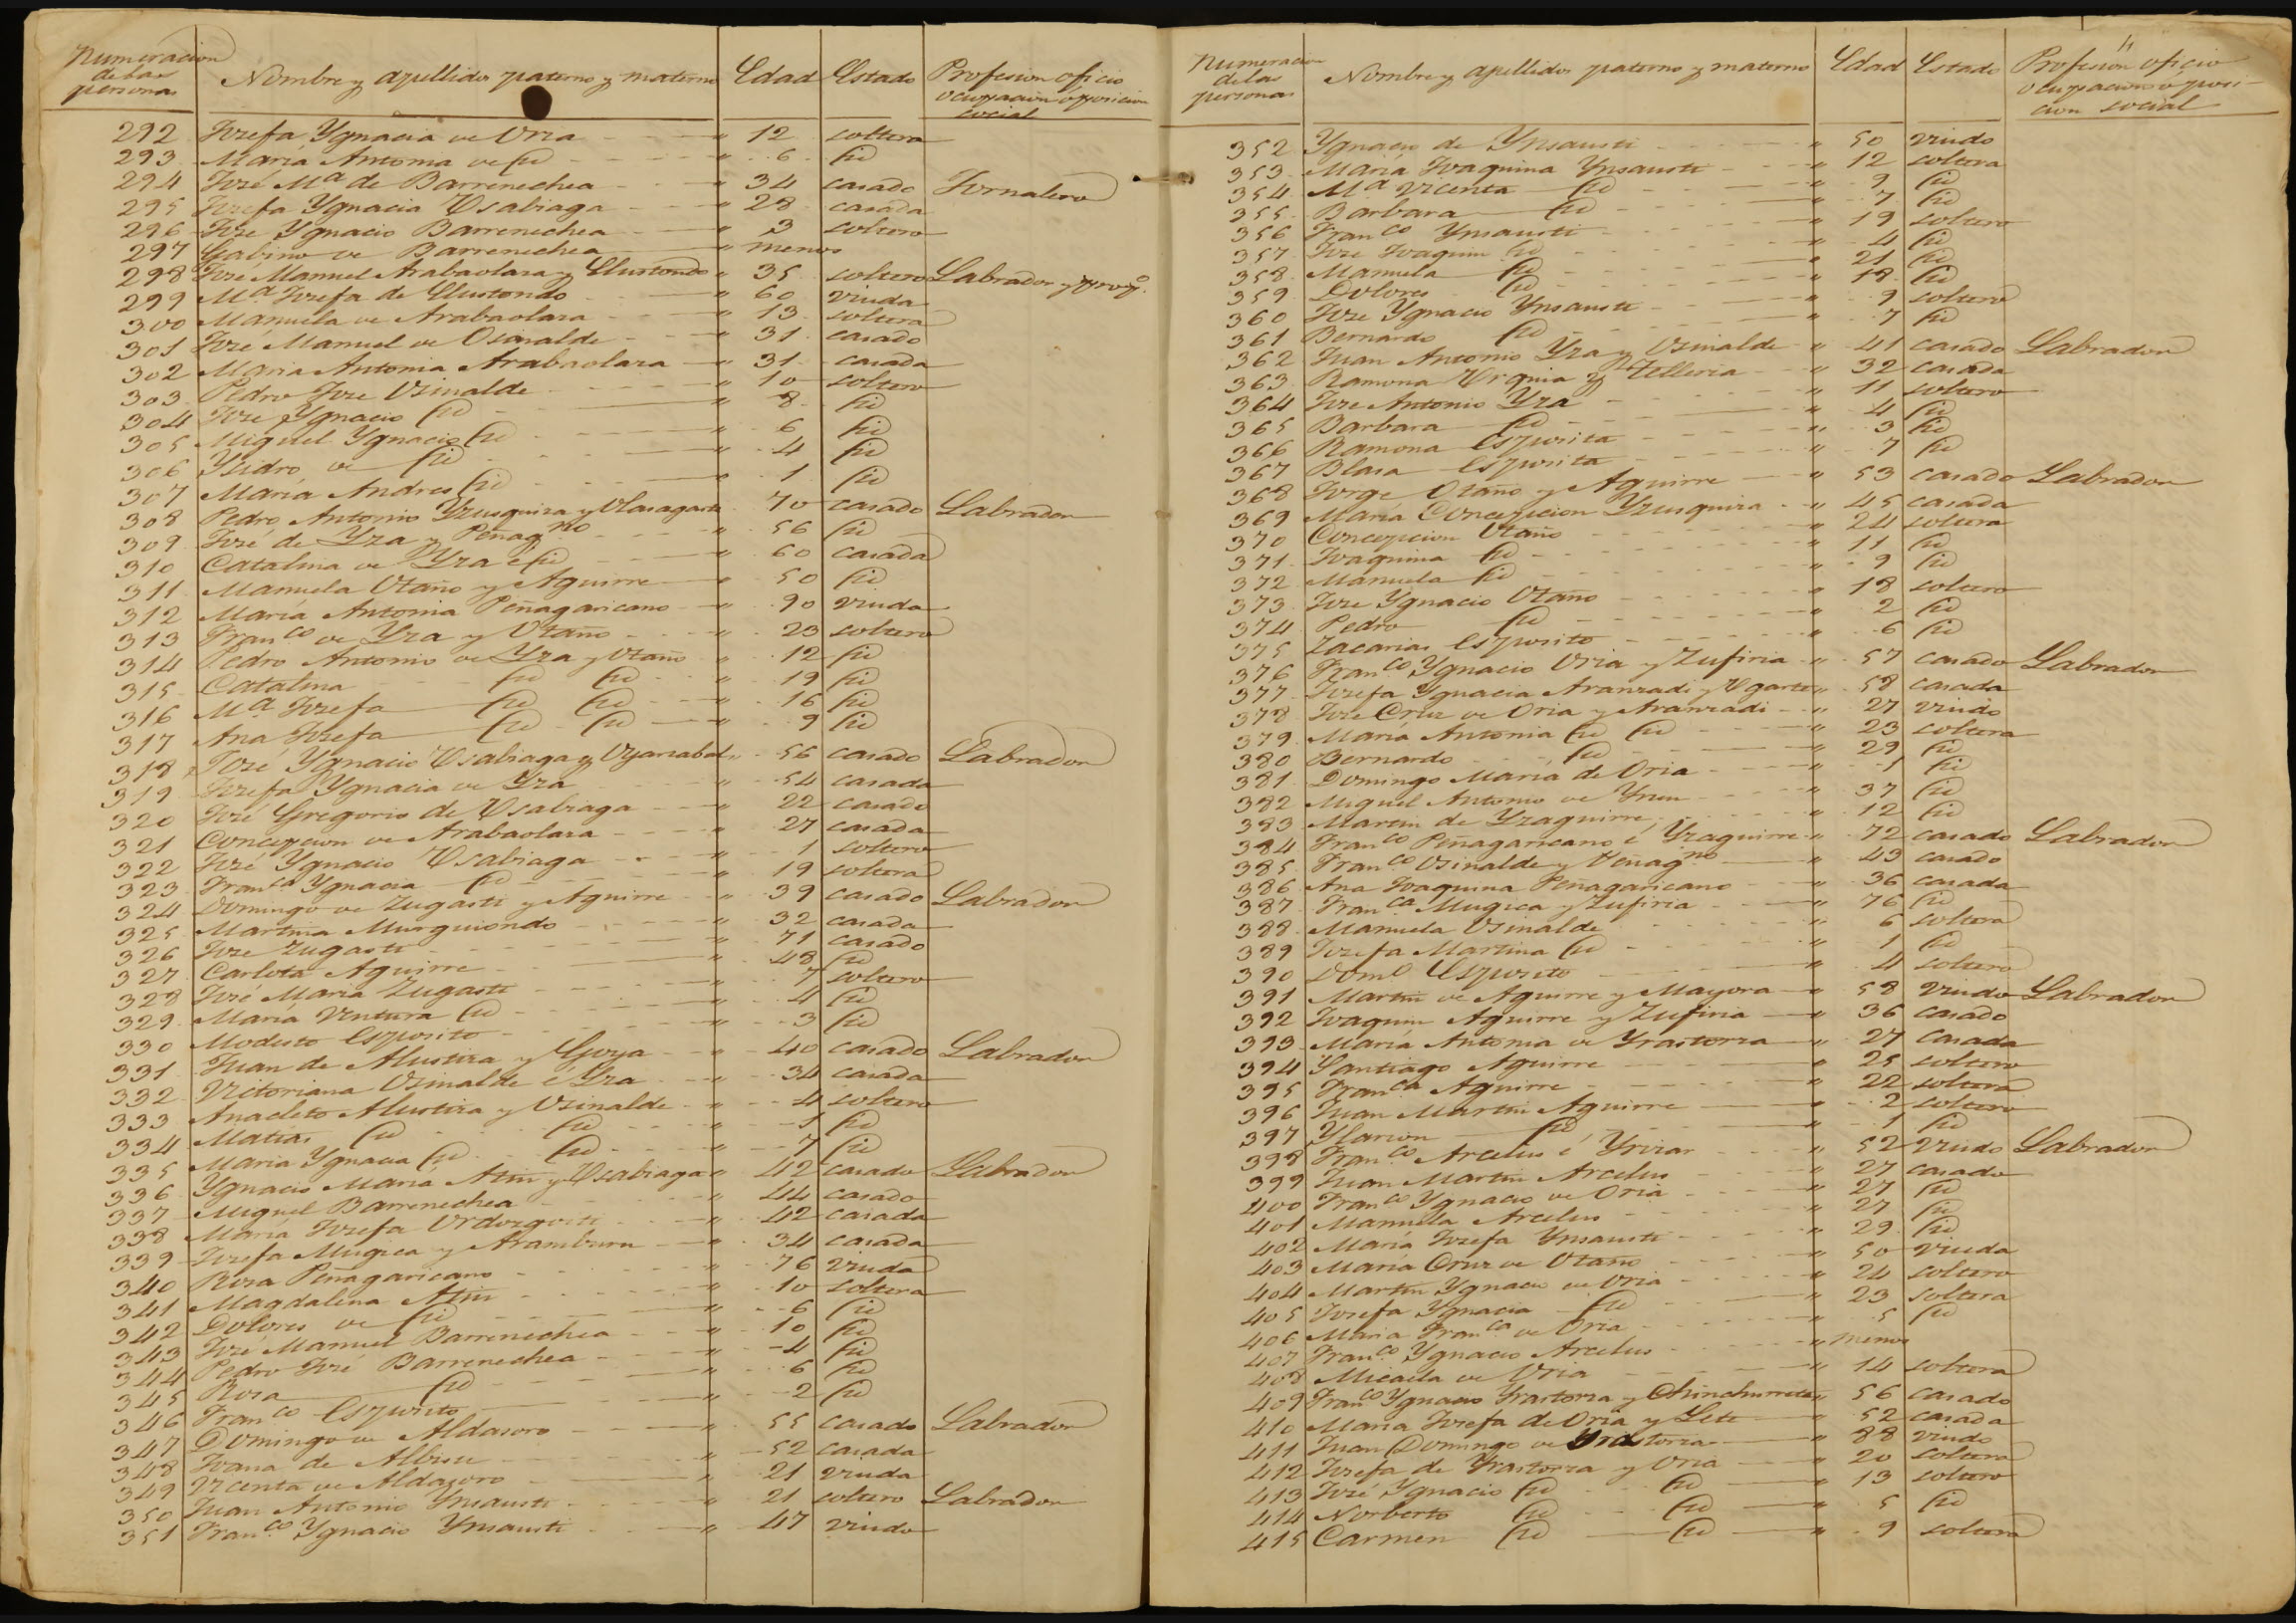 Numeracion de las personas Nombre y apellidos paterno y materno Edad Estado Profesion oficio ocupacion ó posicion social
292 Josefa Ygnacia de Oria " 12 soltera
293 María Antonia de id " 6 id
294 José Mª de Barrenechea " 34 casado Jornalero
295 Josefa Ygnacia Usabiaga " 28 casada
296 Jose Ygnacio Barrenechea " 3 soltero
297 Gabino de Barrenechea " menor
298 Jose Manuel Arabaolaza y Elustondo " 35 soltero Labrador y propº
299 Mª Josefa de Elustondo " 60 viuda
300 Manuela de Arabaolaza " 13 soltera
301 José Manuel de Osinalde " 31 casado
302 Maria Antonia Arabaolaza " 31 casada
303 Pedro Jose Osinalde " 10 soltero
304 Jose Ygnacio id " 8 id
305 Miguel Ygnacio id " 6 id
306 Ysidro de id " 4 id
307 María Andres id " 1 id
308 Pedro Antonio Yzusquiza y Olasagasti 70 casado Labrador
309 José de Yza y Peñagno " 56 id
310 Catalina de Yza é id " 60 casada
311 Manuela Otaño y Aguirre " 50 id
312 María Antonia Peñagaricano " 90 viuda
313 Franco de Yza y Otaño " 23 soltero
314 Pedro Antonio de Yza y Otaño " 12 id
315 Catalina id id " 19 id
316 Mª Josefa id id " 16 id
317 Ana Josefa id id " 9 id
318 José Ygnacio Usabiaga y " 56 casado Labrador
319 Josefa Ygnacia de Yza " 54 casada
320 José Gregorio de Usabiaga " 22 casado
321 Concepcion de Arabaolaza " 27 casada
322 José Ygnacio Usabiaga " 1 soltero
323 Franca Ygnacia id " 19 soltera
324 Domingo de Zugasti y Aguirre " 39 casado Labrador
325 Martina Murguiondo " 32 casada
326 Jose Zugasti " 71 casado
327 Carlota Aguirre " 48 id
328 José María Zugasti " 7 soltero
329 María Ventura id " 4 id
330 Modesto Esposito " 3 id
331 Juan de Alustiza y Goya " 40 casado Labrador
332 Victoriana Osinalde é Yza " 34 casada
333 Anacleto Alustiza y Osinalde " 4 soltero
334 Matías id id " 1 id
335 Maria Ygnacia id id " 7 id
336 Ygnacio Maria Atin y Usabiaga " 42 casado Labrador
337 Miguel Barrenechea " 44 casado
338 María Josefa Ordozgoiti " 42 casada
339 Josefa Mugica y Aramburu " 34 casada
340 Rosa Peñagaricano " 76 viuda
341 Magdalena Atin " 10 soltera
342 Dolores de id " 6 id
343 José Manuel Barrenechea " 10 id
344 Pedro José Barrenechea " 4 id
345 Rosa id " 6 id
346 Franco Esposito " 2 id
347 Domingo de Aldasoro " 55 casado Labrador
348 Juana de Albisu " 52 casada
349 Vicenta de Aldasoro " 21 viuda
350 Juan Antonio Ynsausti " 21 soltero Labrador
351 Franco Ygnacio Ynsausti " 47 viudo
Numeracion de las personas Nombre y apellidos paterno y materno Edad Estado Profesion oficio ocupacion ó posicion social
352 Ygnacio de Ynsausti " 50 viudo
353 María Joaquina Ynsausti " 12 soltera
354 Mª Vicenta id " 9 id
355 Barbara id " 7 id
356 Franco Ynsausti " 19 soltero
357 Jose Joaquin id " 4 id
358 Manuela id " 21 id
359 Dolores id " 18 id
360 Jose Ygnacio Ynsausti " 9 soltero
361 Bernardo id " 7 id
362 Juan Antonio Yza y Osinalde " 41 casado Labrador
363 Ramona Urquia y Telleria " 32 casada
364 Jose Antonio Yza " 11 soltero
365 Barbara id " 4 id
366 Ramona Esposita " 3 id
367 Blasa Esposita " 7 id
368 Jorge Otaño y Aguirre " 53 casado Labrador
369 María Concepcion Yzusquiza " 45 casada
370 Concepcion Otaño " 24 soltera
371 Joaquina id " 11 id
372 Manuela id " 9 id
373 Jose Ygnacio Otaño " 18 soltero
374 Pedro id " 2 id
375 Zacarias Esposito " 6 id
376 Franco Ygnacio Oria y Zufiria " 57 casado Labrador
377 Josefa Ygnacia Aranzadi y Ugarte " 58 casada
378 Jose Cruz de Oria y Aranzadi " 27 viudo
379 María Antonia id id " 23 soltera
380 Bernardo id " 29 id
381 Domingo María de Oria " 1 id
382 Miguel Antonio de Yrun " 37 id
383 Martin de Yzaguirre " 12 id
384 Franco Peñagaricano é Yzaguirre " 72 casado Labrador
385 Franco Osinalde y Peñagno " 43 casado
386 Ana Joaquina Peñagaricano " 36 casada
387 Franca Mugica y Zufiria " 76 id
388 Manuela Osinalde " 6 soltera
389 Josefa Martina id " 1 id
390 Domo Esposito " 4 soltero
391 Martin de Aguirre y Mayora " 58 viudo Labrador
392 Joaquin Aguirre y Zufiria " 36 casado
393 María Antonia de Yrastorza " 27 casada
394 Santiago Aguirre " 25 soltero
395 Franca Aguirre " 22 soltera
396 Juan Martin Aguirre " 2 soltero
397 Ylarion id " 1 id
398 Franco Arcelus é Yrizar " 52 viudo Labrador
399 Juan Martin Arcelus " 27 casado
400 Franco Ygnacio de Oria " 27 id
401 Manuela Arcelus " 27 id
402 María Josefa Ynsausti " 29 id
403 María Cruz de Otaño " 50 viuda
404 Martin Ygnacio de Oria " 24 soltero
405 Josefa Ygnacia id " 23 soltera
406 Maria Franca de Oria " 5 id
407 Franco Ygnacio Arcelus " menor
408 Micaela de Oria " 14 soltera
409 Franco Ygnacio Yrastorza y Chinchurreta " 56 casado
410 Maria Josefa de Oria y Lete " 52 casada
411 Juan Domingo de Yrastorza " 88 viudo
412 Josefa de Yrastorza y Oria " 20 soltera
413 José Ygnacio id id " 13 soltero
414 Norberto id id " 5 id
415 Carmen id id " 9 soltera